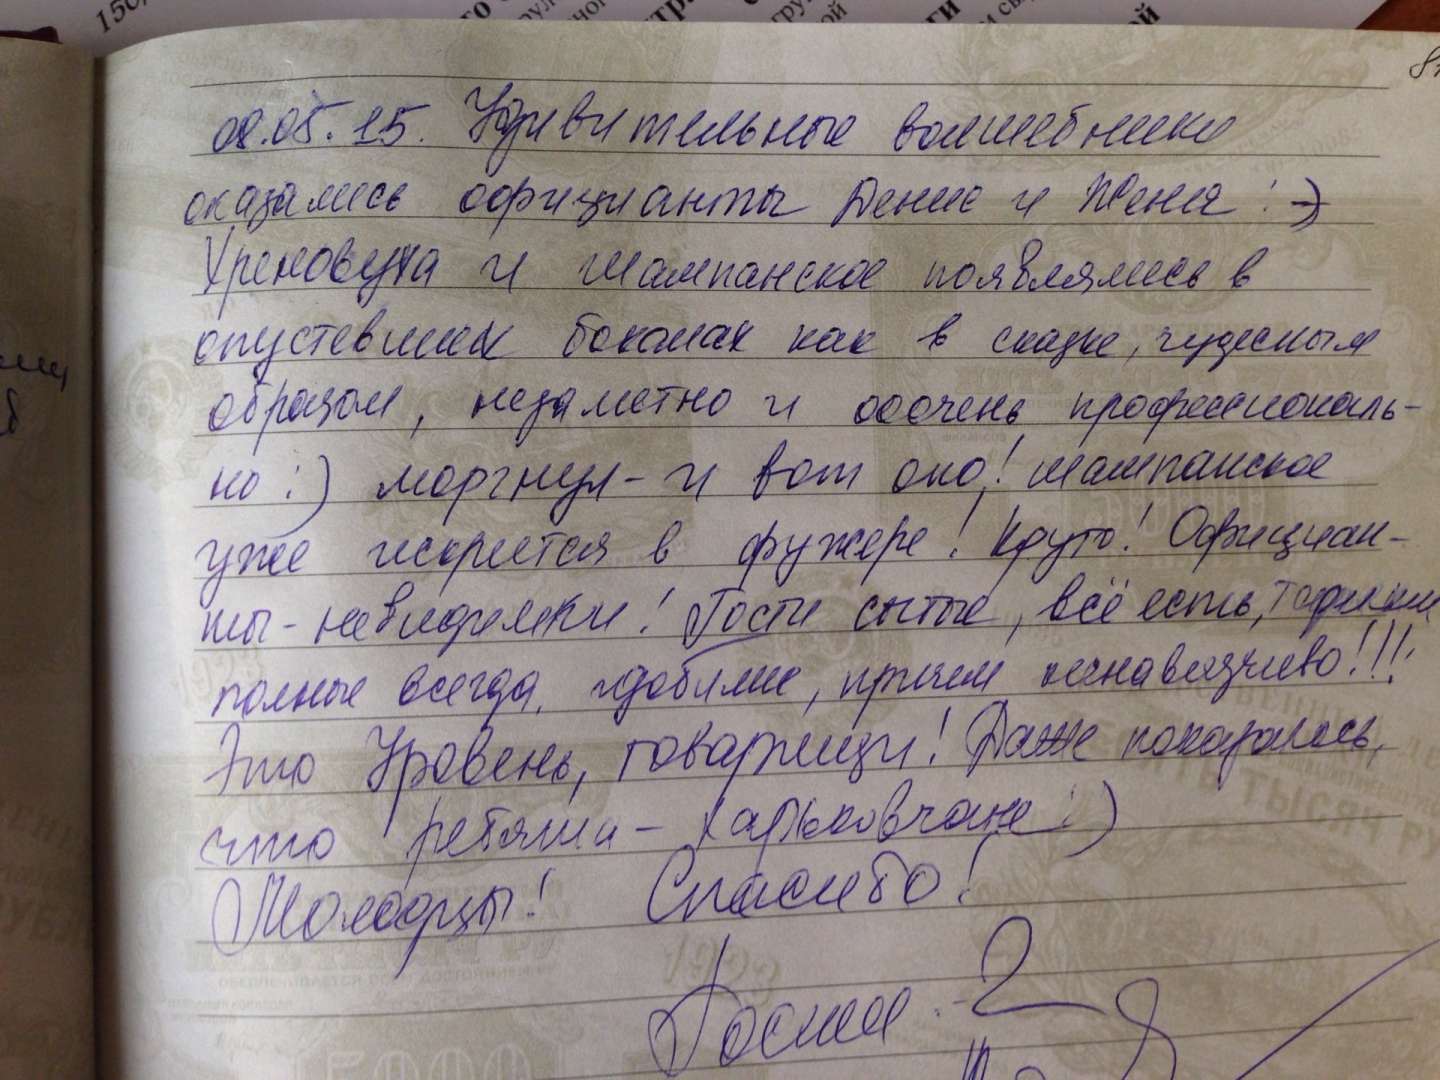 08.05.15. Удивительные волшебники
оказались официанты Денис и Женя :-)
Хреновуха и шампанское появлялись в
опустевших бокалах как в сказке, чудесным
образом, незаметно и ооочень профессиональ-
но :) моргнул - и вот оно! Шампанское
уже искрится в фужере! Круто! Официан-
ты - невидимки! Гости сытые, всё есть,
полные всегда, причем ненавязчиво!!!
Это Уровень, товарищи! Даже показалось,
что ребята - харьковчане :)
Молодцы! Спасибо!
Гости